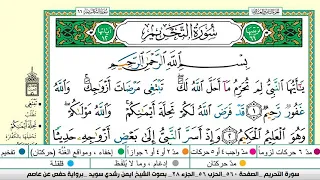 سُورَةُ التَّحْرِيمِ
بِسْمِ اللَّهِ الرَّحْمَٰنِ الرَّحِيمِ
يَٰٓأَيُّهَا ٱلنَّبِىُّ لِمَ تُحَرِّمُ مَآ أَحَلَّ ٱللَّهُ لَكَ ۖ تَبْتَغِى مَرْضَاتَ أَزْوَٰجِكَ ۚ وَٱللَّهُ
غَفُورٌ رَّحِيمٌ ١ قَدْ فَرَضَ ٱللَّهُ لَكُمْ تَحِلَّةَ أَيْمَٰنِكُمْ ۚ وَٱللَّهُ مَوْلَىٰكُمْ ۖ
وَهُوَ ٱلْعَلِيمُ ٱلْحَكِيمُ ٢ وَإِذْ أَسَرَّ ٱلنَّبِىُّ إِلَىٰ بَعْضِ أَزْوَٰجِهِۦ حَدِيثًا
مد ٦ حركات لزوماً مد ٢ أو ٤ أو ٦ جوازاً إخفاء، ومواقع الغنة (حركتان) تفخيم
مد حركتان إدغام، وما لا يلفظ قلقلة
سورة التحريم الصفحة ٥٦٠ الحزب ٥٦ الجزء ٢٨ بصوت الشيخ أيمن رشدي سويد - برواية حفص عن عاصم